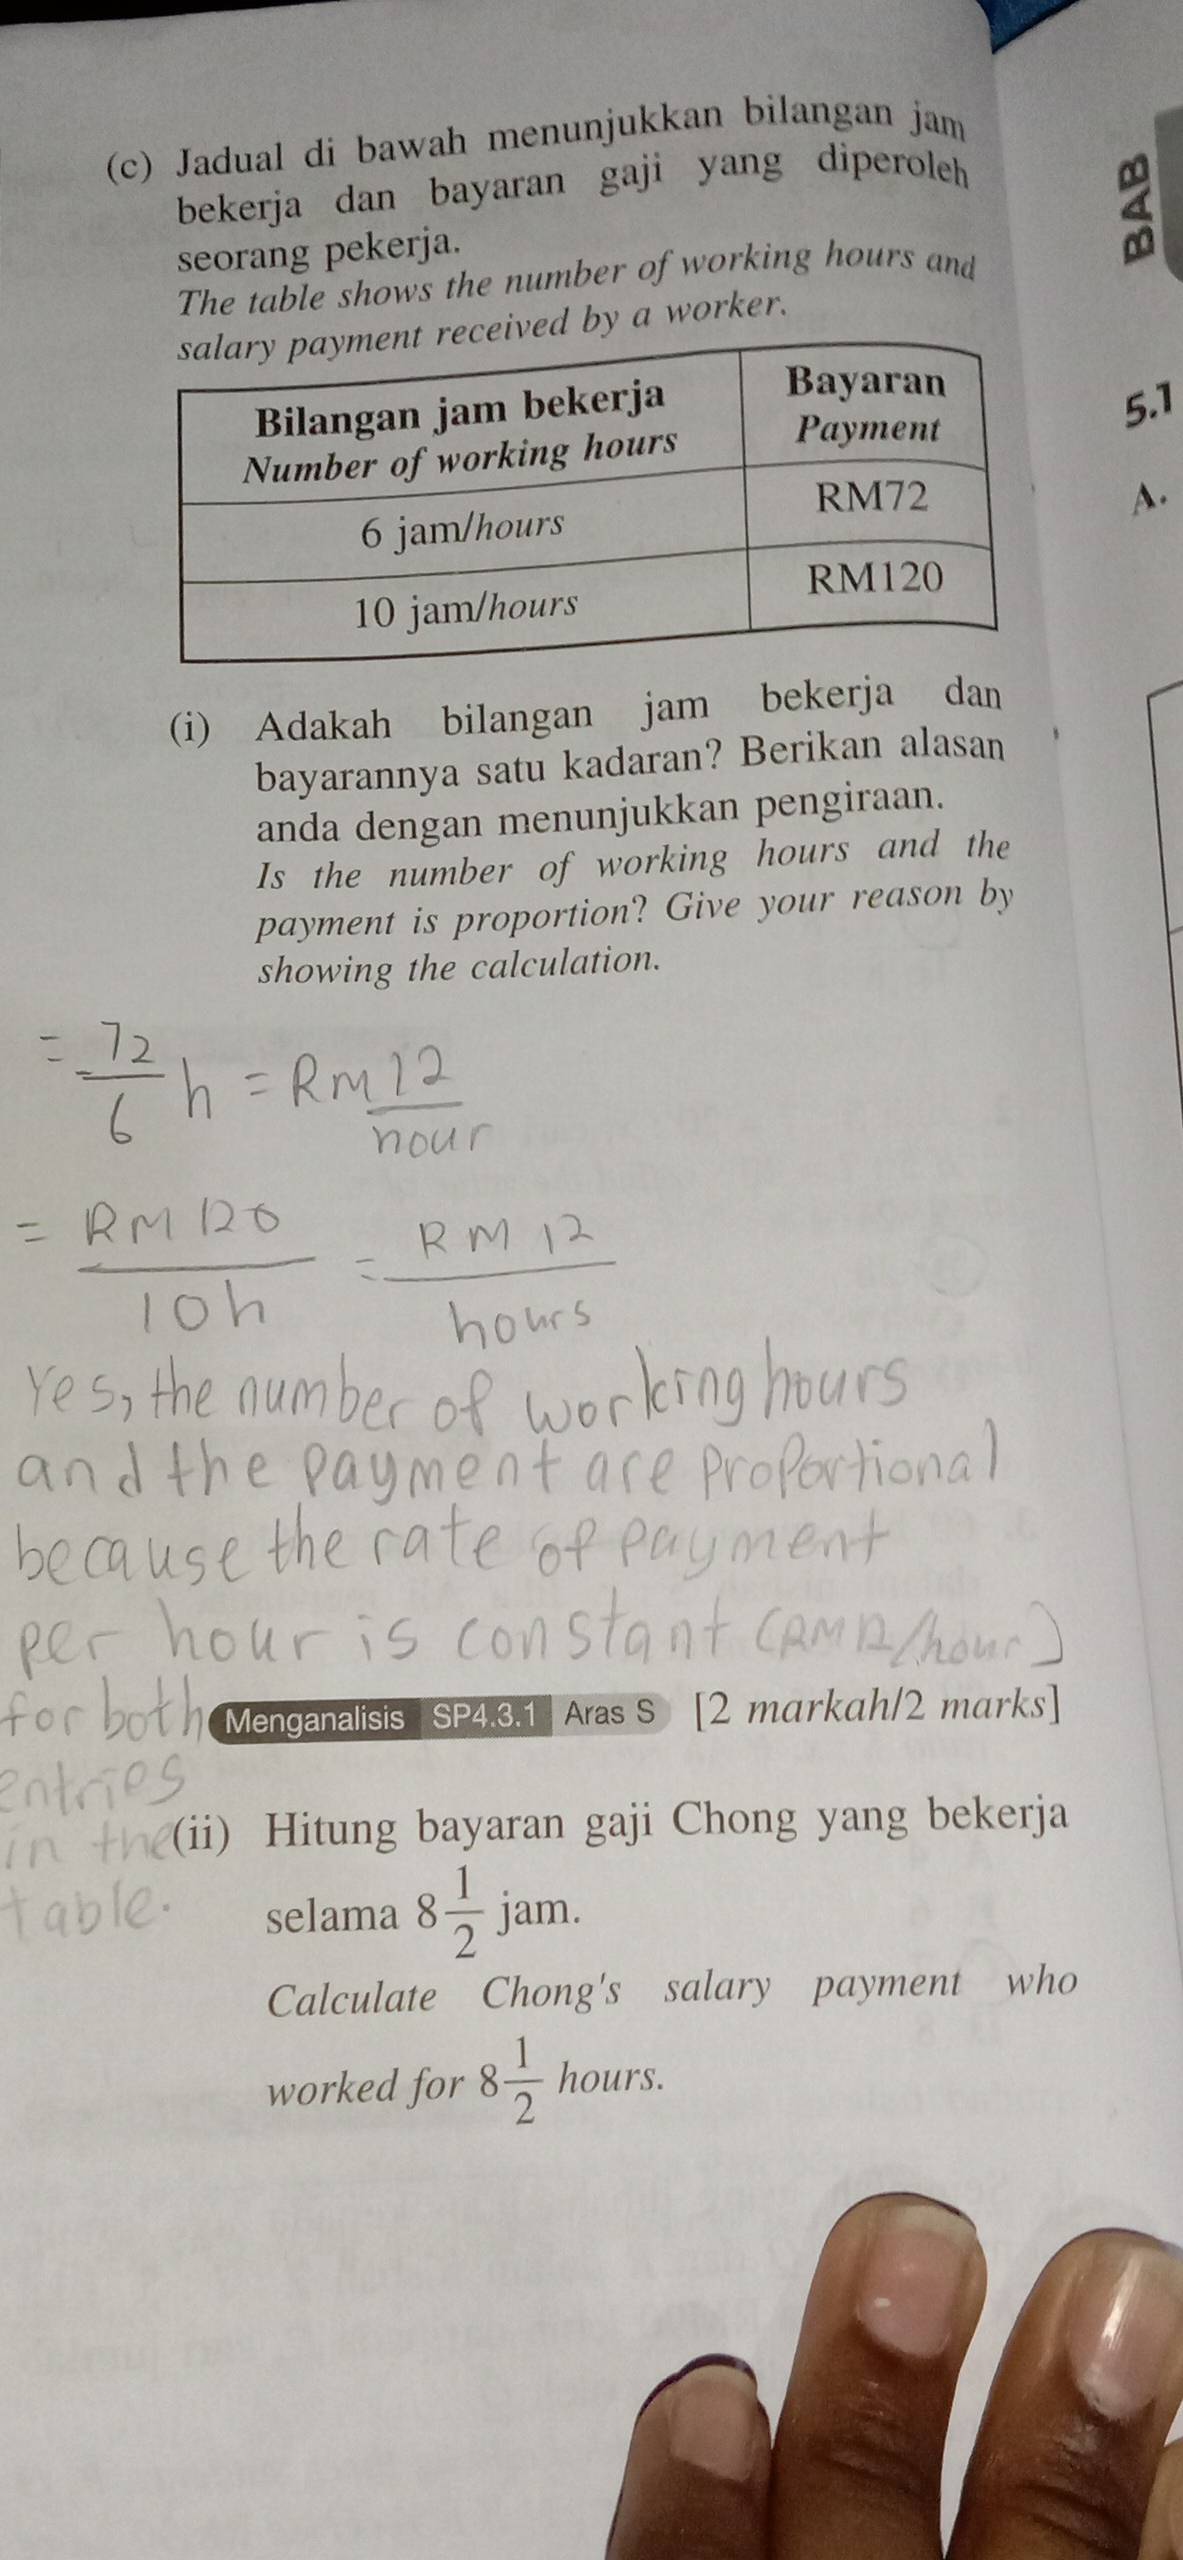 (c) Jadual di bawah menunjukkan bilangan jam
bekerja dan bayaran gaji yang diperoleh
seorang pekerja.
The table shows the number of working hours and
salary payment received by a worker.
Bilangan jam bekerja
Number of working hours
Bayaran
Payment
6 jam/hours
RM72
10 jam/hours
RM120
(i) Adakah bilangan jam bekerja dan
bayarannya satu kadaran? Berikan alasan
anda dengan menunjukkan pengiraan.
Is the number of working hours and the
payment is proportion? Give your reason by
showing the calculation.
= 72/6 h = RM12/hour
= RM120/10h = RM12/hours
Yes, the number of working hours
and the payment are proportional
because the rate of payment
per hour is constant (RM12/hour)
for both
Menganalisis SP4.3.1 Aras S [2 markah/2 marks]
entries
in the
table.
(ii) Hitung bayaran gaji Chong yang bekerja
selama 8 1/2 jam.
Calculate Chong's salary payment who
worked for 8 1/2 hours.
BAB
5.1
A.